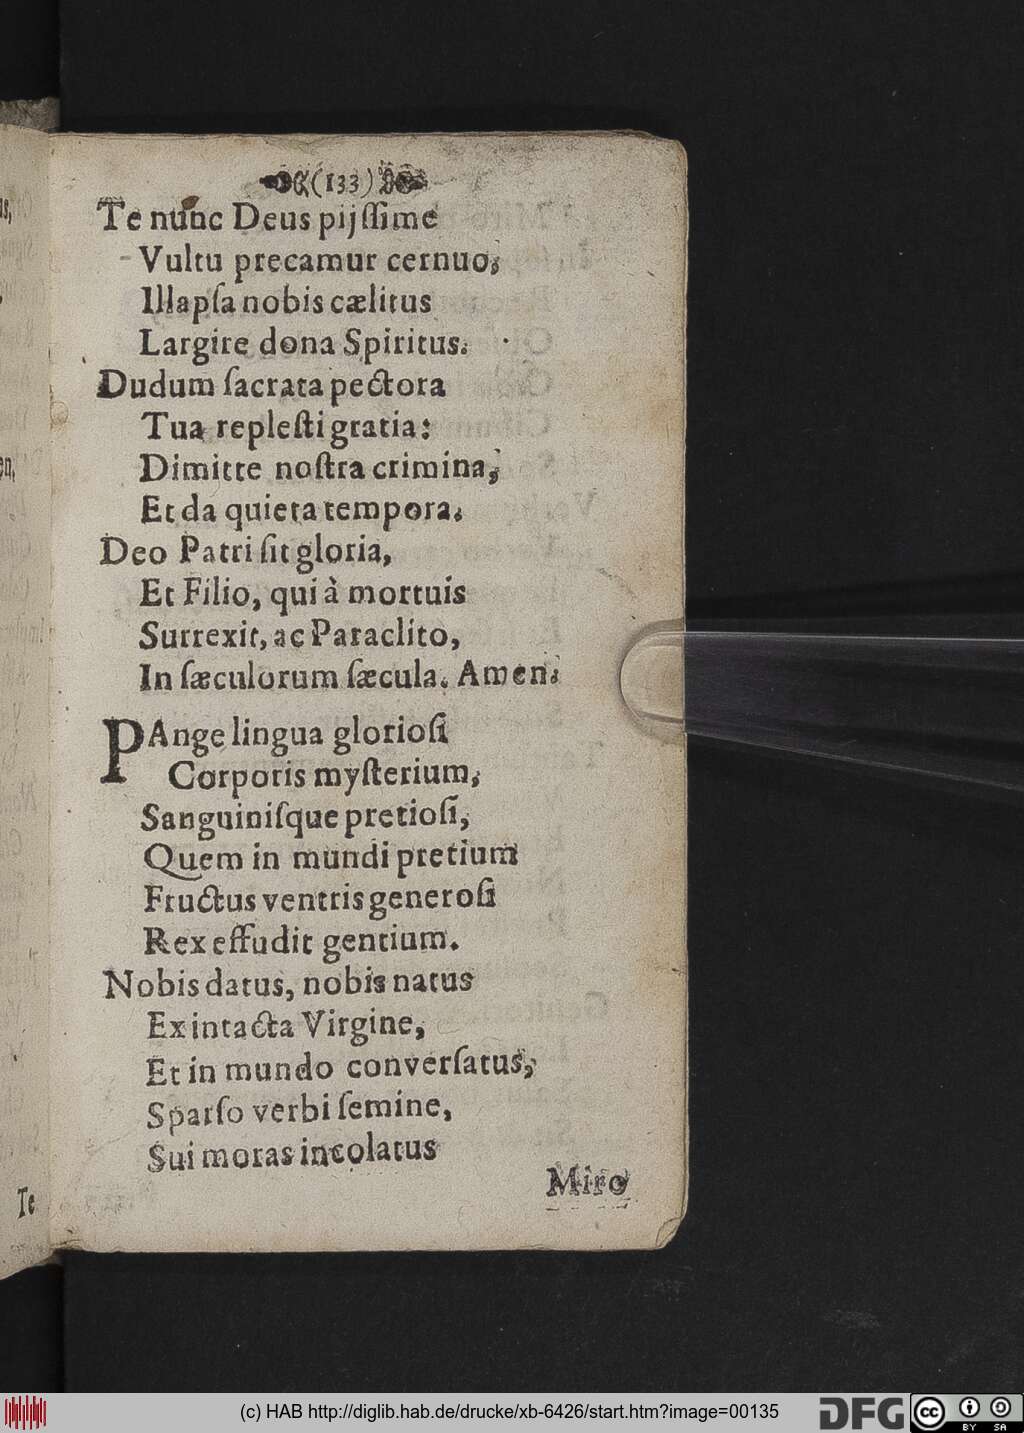 (133)
Te nunc Deus pijſſime
Vultu precamur cernuo,
Illapſa nobis cælitus
Largire dona Spiritus.
Dudum ſacrata pectora
Tua repleſti gratia:
Dimitte noſtra crimina,
Et da quieta tempora.
Deo Patri ſit gloria,
Et Filio, qui à mortuis
Surrexit, ac Paraclito,
In ſæculorum ſæcula. Amen.
PAnge lingua glorioſi
Corporis myſterium,
Sanguiniſque pretioſi,
Quem in mundi pretium
Fructus ventris generoſi
Rex effudit gentium.
Nobis datus, nobis natus
Ex intacta Virgine,
Et in mundo converſatus,
Sparſo verbi ſemine,
Sui moras incolatus
Miro
Te
(c) HAB http://diglib.hab.de/drucke/xb-6426/start.htm?image=00135
DFG
cc
BY
SA